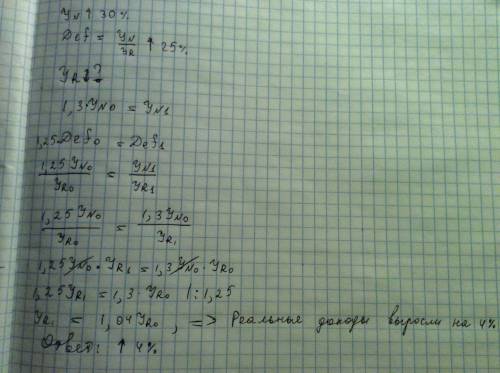 YN ↑ 30%
Def = YN/YR ↑ 25%
YR1?
1,3·YN0 = YN1
1,25·Def0 = Def1
1,25YN0/YR0 = YN1/YR1
1,25YN0/YR0 = 1,3YN0/YR1
1,25YN0·YR1 = 1,3YN0·YR0
1,25YR1 = 1,3·YR0 /:1,25
YR1 = 1,04YR0, => Реальные доходы выросли на 4%
Ответ: ↑ 4%